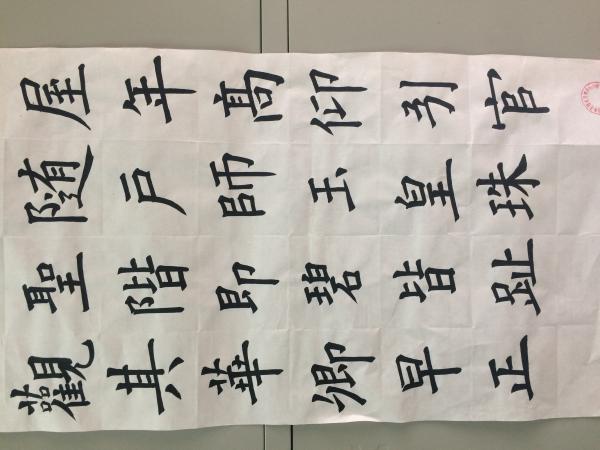 官珠趾正
引皇皆早
仰玉碧卿
高師即華
年户階其
屋随聖觀